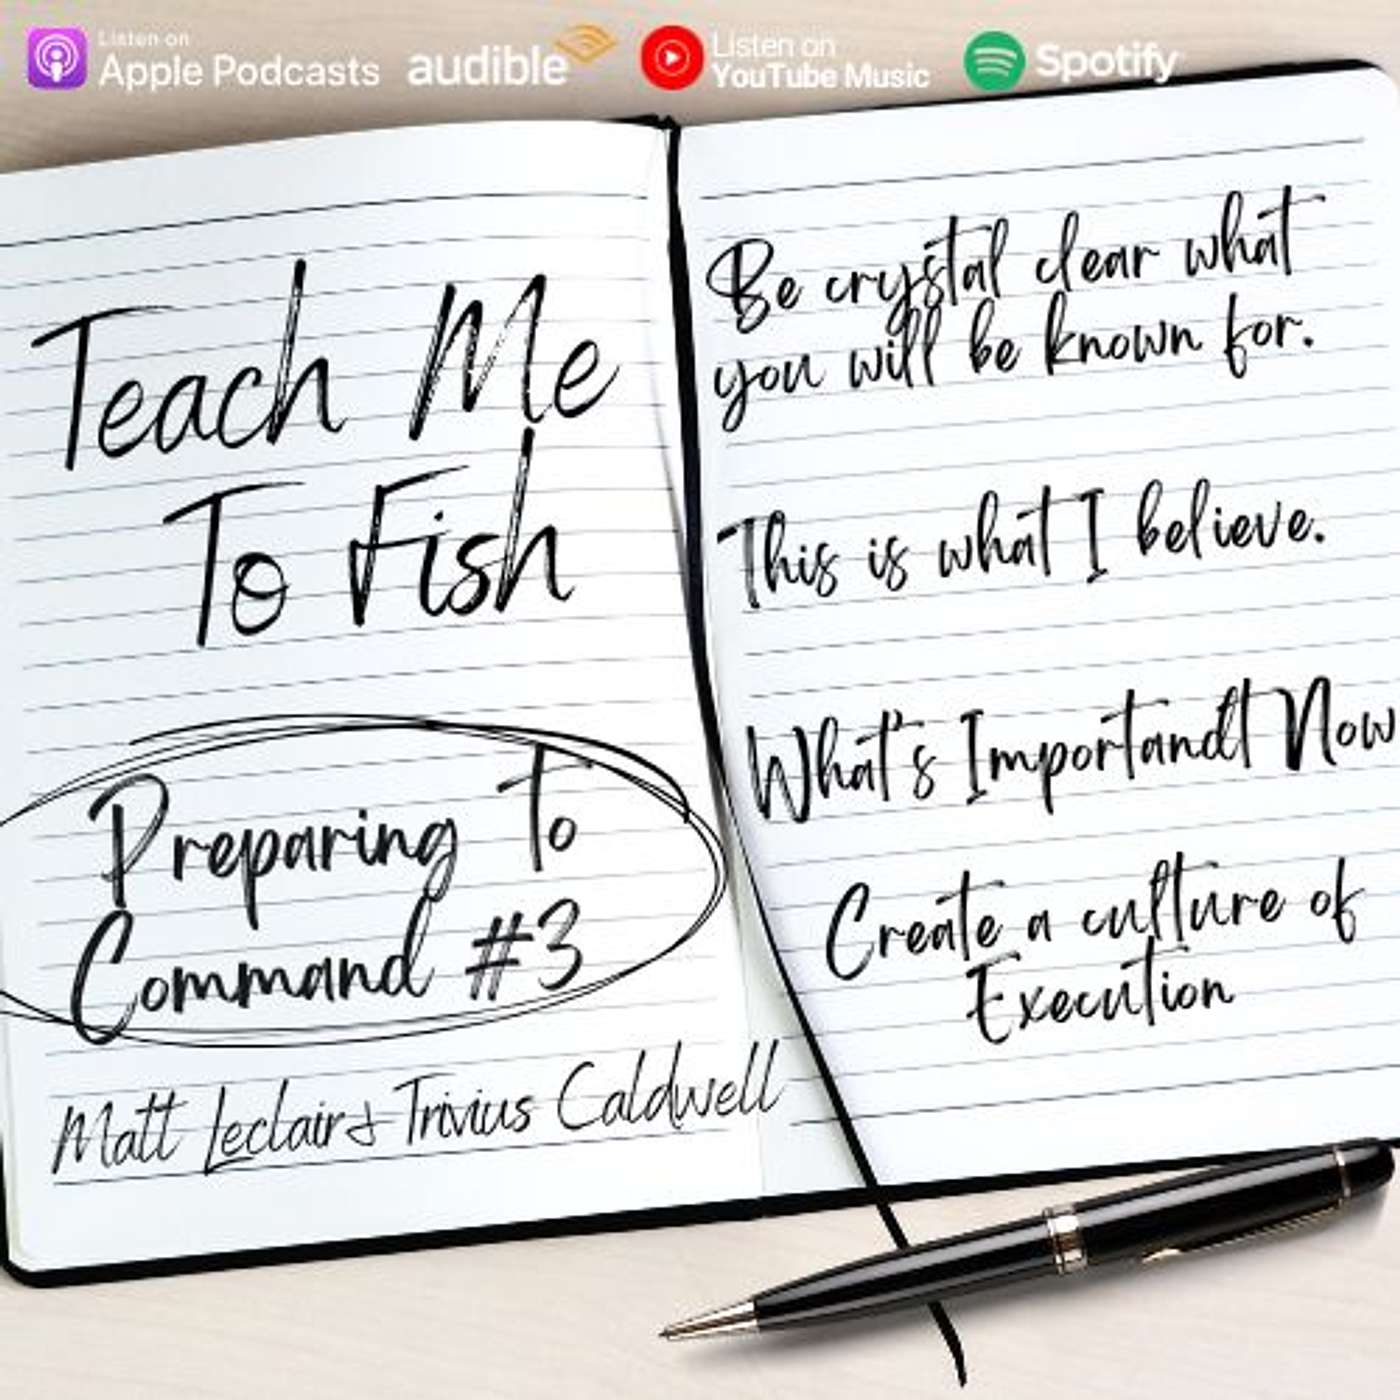 Listen on
Apple Podcasts
audible
Listen on
YouTube Music
Spotify
Teach Me
To Fish
Preparing To
Command #3
Matt Leclair & Trivius Caldwell
Be crystal clear what
you will be known for.
This is what I believe.
What's Importandt Now
Create a culture of
Execution